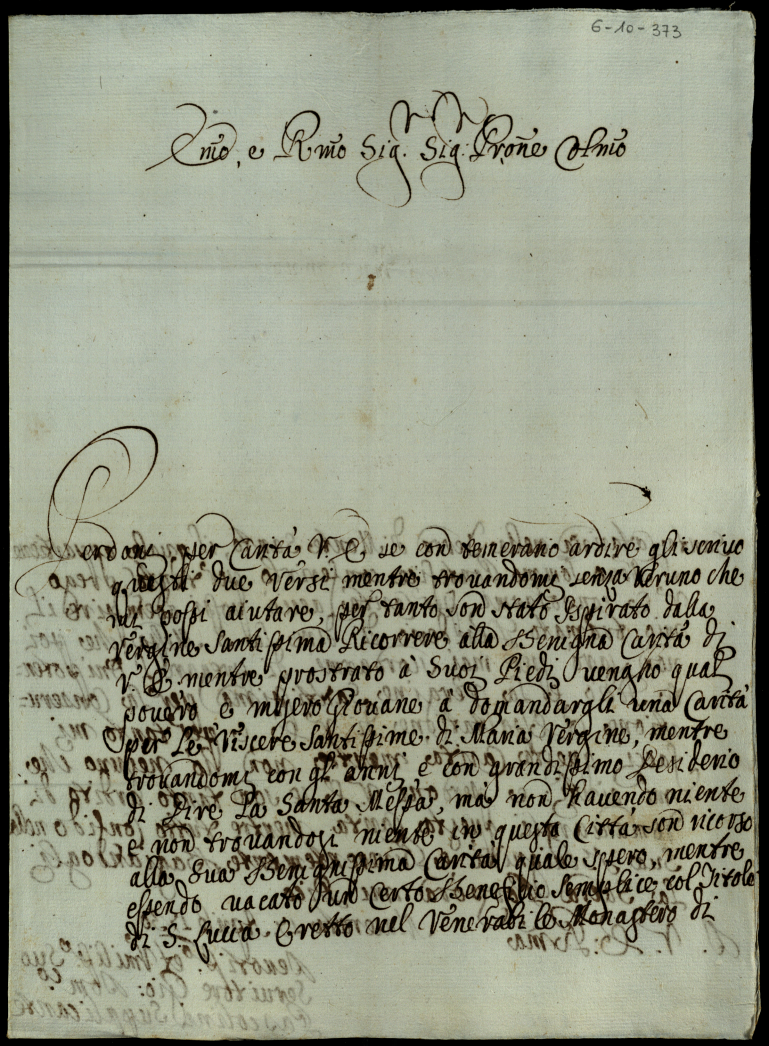 6-10-373
Emo, e Rmo Sig.r Sig.r Prone Colmo
Perdoni per Carità V. E. se con temerario ardire gli scrivo
questi due versi mentre trovandomi senza Veruno che
mi possi aiutare, per tanto son stato Ispirato dalla
Vergine Santissima Ricorrere alla Benigna Carità di
V. E. mentre prostrato à Suoi Piedi vengho qual
povero e misero Giovane à domandargli una Carità
per Le Viscere Santissime di Maria Vergine, mentre
trovandomi con gl'anni, e con grandissimo Desiderio
di Dire La Santa Messa, mà non havendo niente
e non trovandosi niente in questa Città son ricorso
alla Sua Benignissima Carità quale spero, mentre
essendo vacato un certo Benefizio Semplice col Titolo
di S. Lucia Eretto nel Venerabile Monastero di